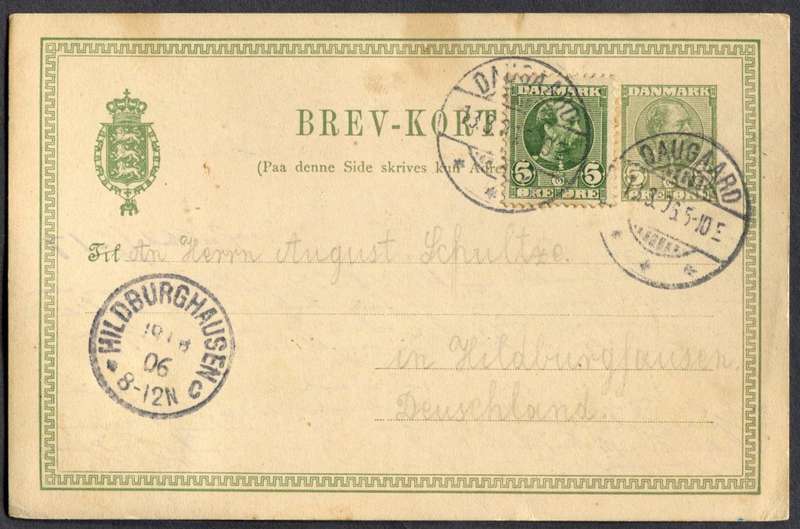 DANMARK
5 5
ØRE ØRE
DANMARK
5
ØRE
DAUGAARD
DAUGAARD
5-10 E
BREV-KORT
(Paa denne Side skrives kun
Til An Herrn August Schultze.
in Hildburghausen.
Deuschland.
HILDBURGHAUSEN
06
8-12N